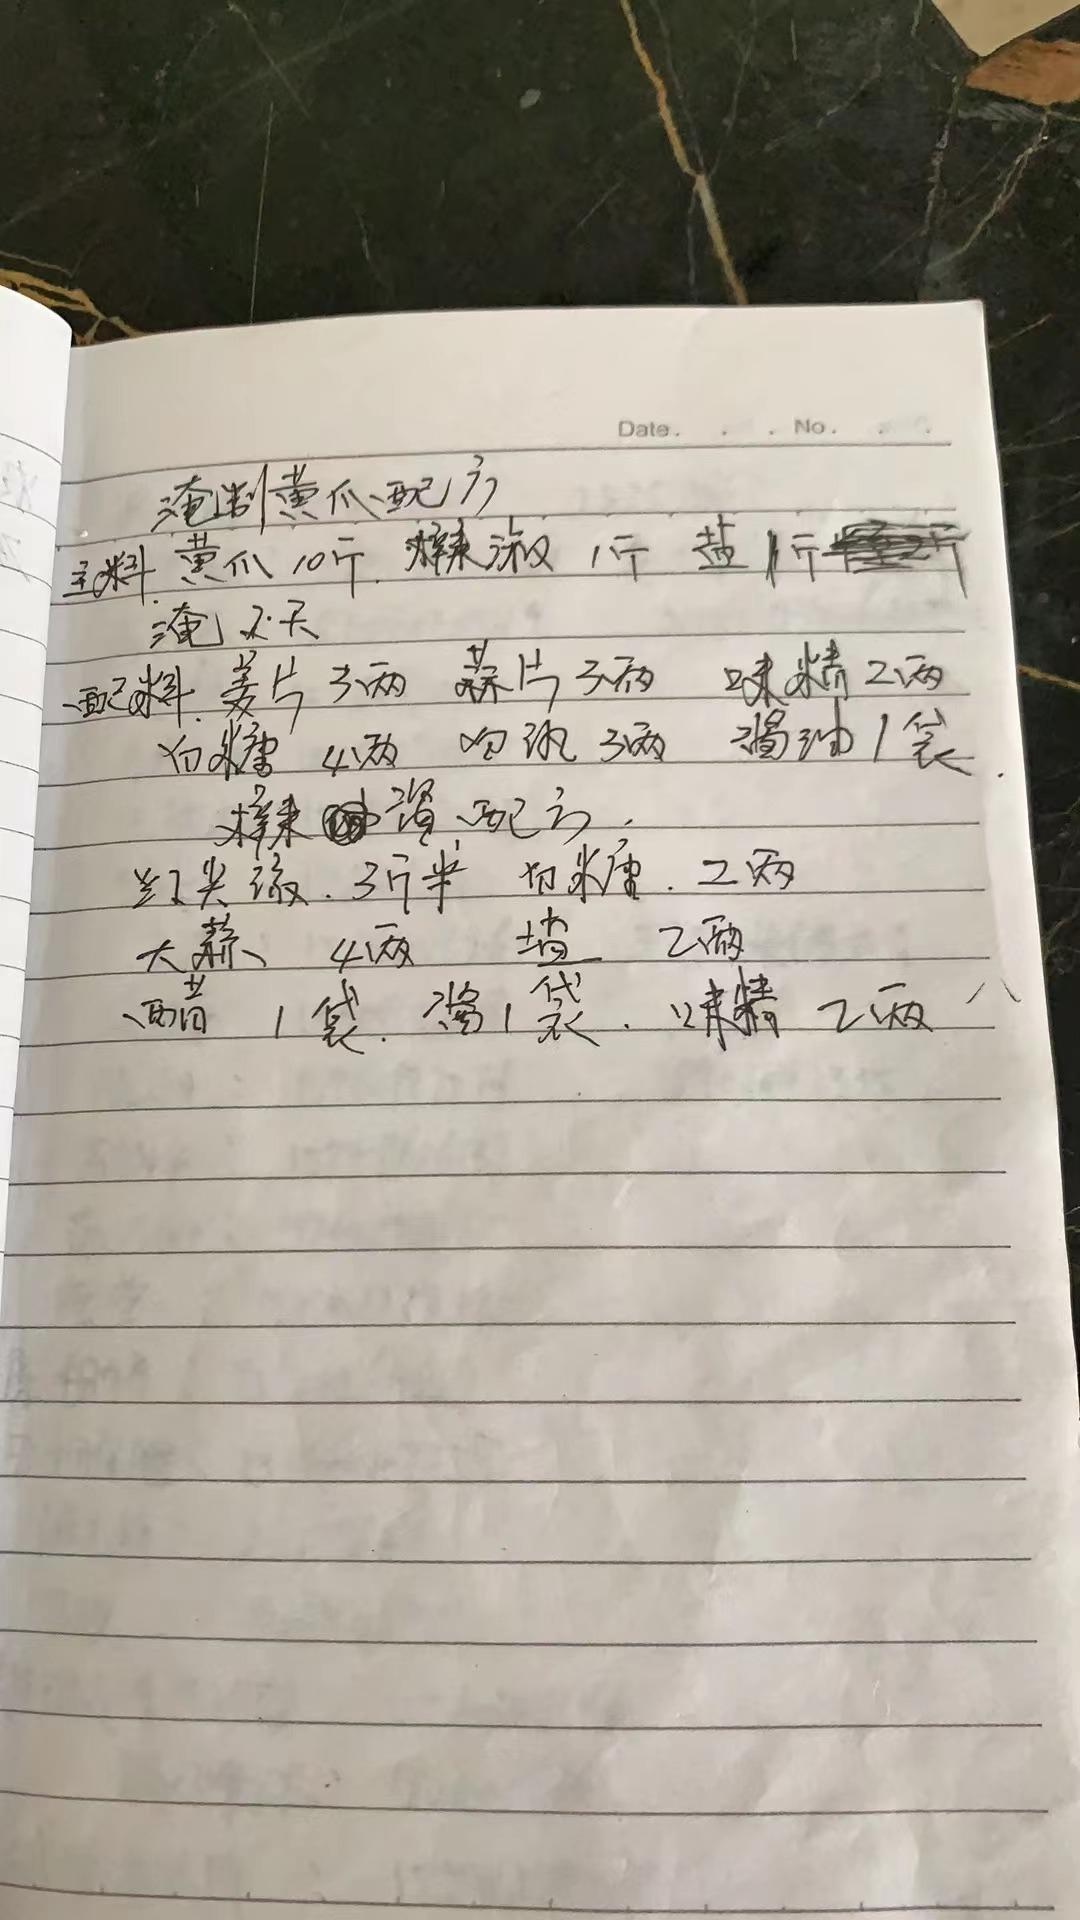 Date. No.
淹制黄瓜配方
主料 黄瓜10斤. 辣椒1斤 盐1斤
淹 天
配料. 姜片3两 蒜片3两 味精2两
白糖 4两 白 3两 酱油1袋.
辣 酱配方.
红尖椒. 3斤半 白糖. 2两
大蒜 4两 盐 2两
醋 1袋. 酱1袋. 味精 2两